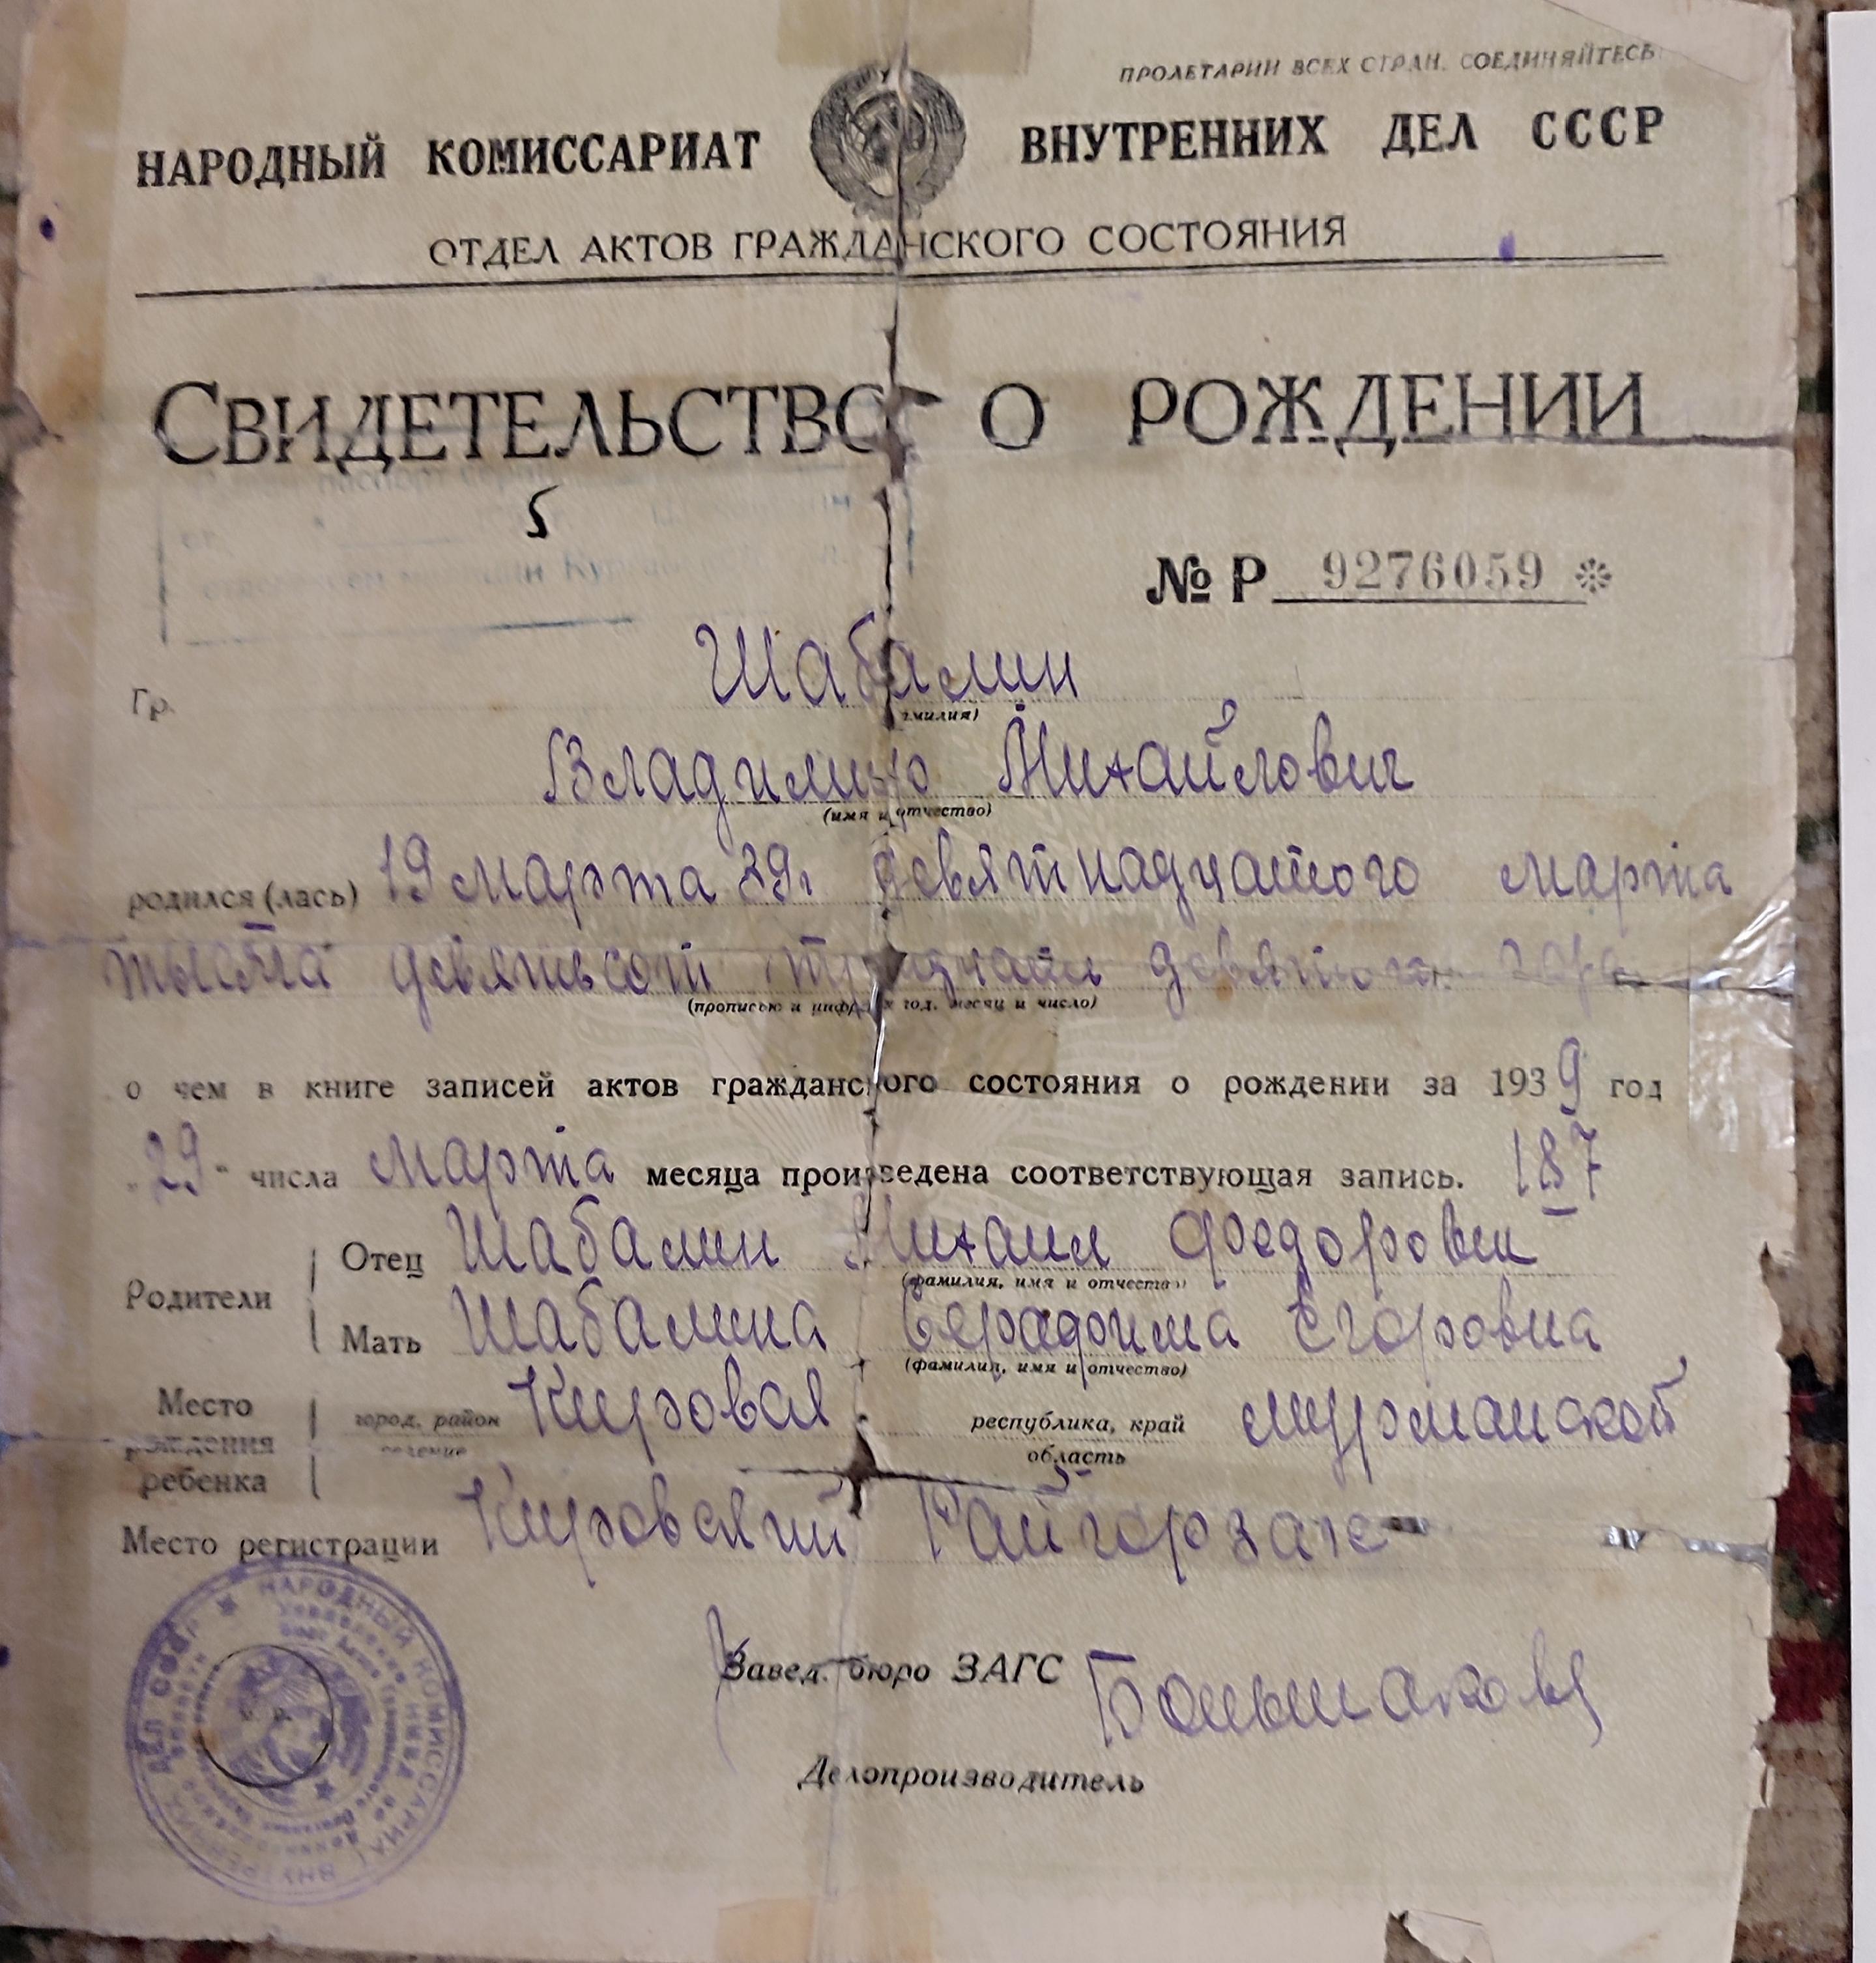 ПРОЛЕТАРИИ ВСЕХ СТРАН, СОЕДИНЯЙТЕСЬ
НАРОДНЫЙ КОМИССАРИАТ ВНУТРЕННИХ ДЕЛ СССР
ОТДЕЛ АКТОВ ГРАЖДАНСКОГО СОСТОЯНИЯ
СВИДЕТЕЛЬСТВО О РОЖДЕНИИ
паспорт
5
№ Р 9276059 *
Гр. Шабалин
(фамилия)
Владимир Михайлович
(имя и отчество)
родился (лась) 19 марта 39г девятнадцатого марта
тысяча девятьсот тридцать девятого года
(прописью и цифрами год, месяц и число)
о чем в книге записей актов гражданского состояния о рождении за 1939 год
29 числа марта месяца произведена соответствующая запись. 187
Родители
Отец Шабалин Михаил Федорович
(фамилия, имя и отчество)
Мать Шабалина Серафима Егоровна
(фамилия, имя и отчество)
Место рождения ребенка
город, район Кировск республика, край Мурманской
селение область
Место регистрации Кировский Райгорзагс
Завед. бюро ЗАГС Большакова
Делопроизводитель
НАРОДНЫЙ КОМИССАРИАТ ВНУТРЕННИХ ДЕЛ СССР